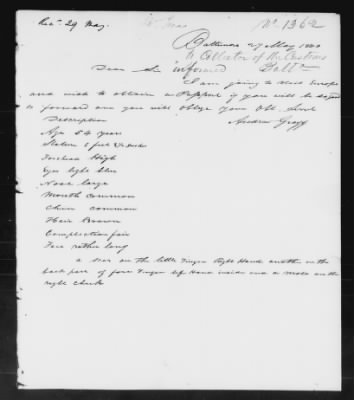 Rec. 29 May.
No. 1362
Baltimore 27 May 18
Collector of the Customs
Balto
Dear Sir
informed
I am going to visit Europe
and wish to obtain a Passport if you will be
to forward one you will oblige your Obt. Servt
Andrew Graff
Description
Age 54 years
Stature 5 feet
Forehead High
Eyes light blue
Nose large
Mouth common
Chin common
Hair Brown
Complection fair
Face rather long
a scar on the little Finger Right Hand another on the
back part of fore Finger left Hand inside and a mole on the
right cheek